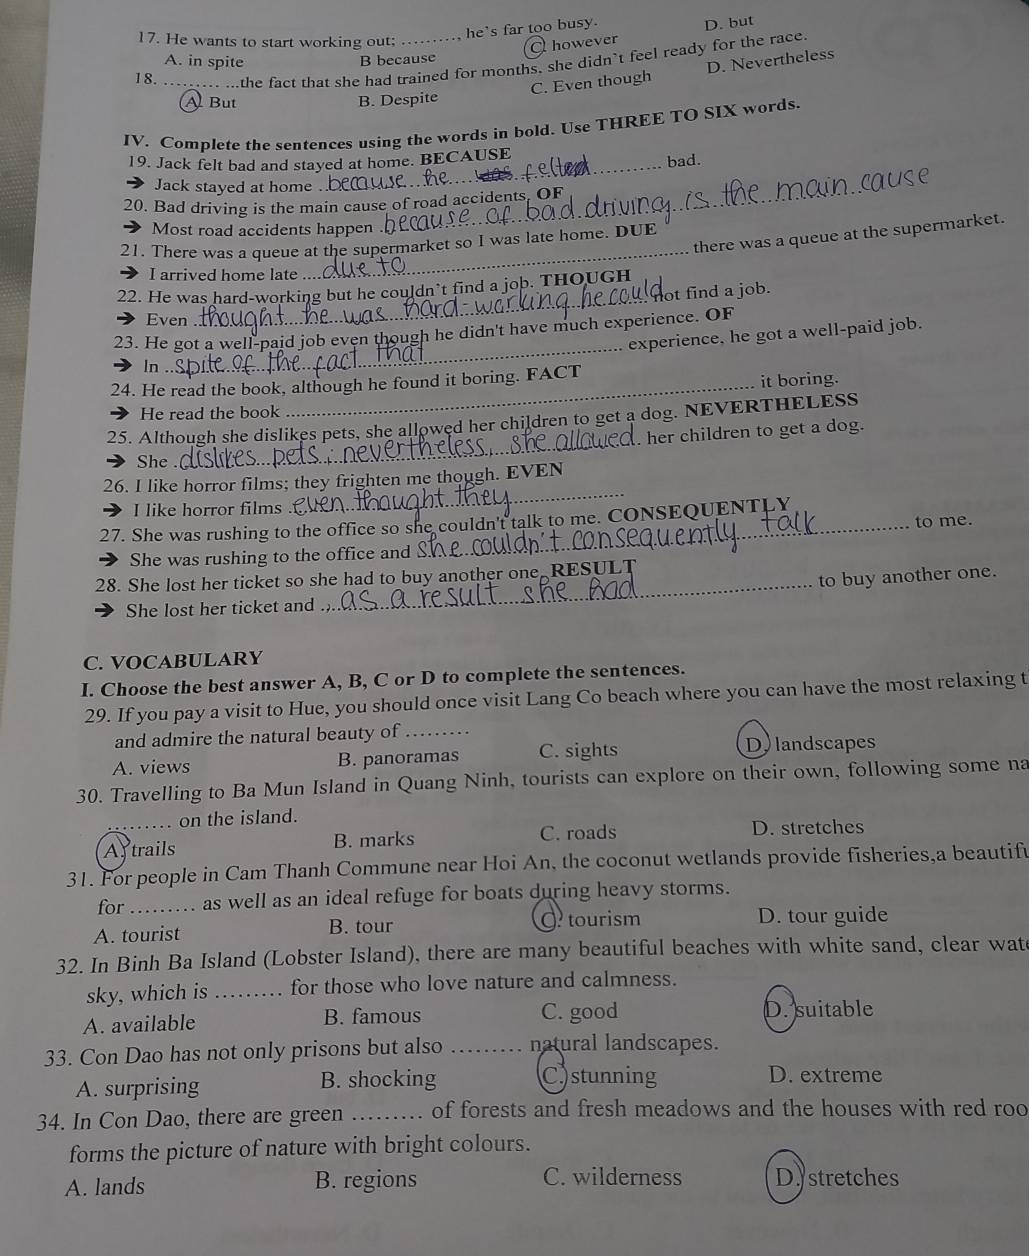 17. He wants to start working out; ........., he's far too busy.
A. in spite B because C. however D. but
18. ......... ...the fact that she had trained for months, she didn't feel ready for the race.
A. But B. Despite C. Even though D. Nevertheless
IV. Complete the sentences using the words in bold. Use THREE TO SIX words.
19. Jack felt bad and stayed at home. BECAUSE
→ Jack stayed at home because he felt bad.
20. Bad driving is the main cause of road accidents. OF
→ Most road accidents happen because of bad driving is the main cause
21. There was a queue at the supermarket so I was late home. DUE
→ I arrived home late due to there was a queue at the supermarket.
22. He was hard-working but he couldn't find a job. THOUGH
→ Even thought he was hard-working he could not find a job.
23. He got a well-paid job even though he didn't have much experience. OF
→ In spite of the fact that experience, he got a well-paid job.
24. He read the book, although he found it boring. FACT
→ He read the book it boring.
25. Although she dislikes pets, she allowed her children to get a dog. NEVERTHELESS
→ She dislikes pets; nevertheless, she allowed her children to get a dog.
26. I like horror films; they frighten me though. EVEN
→ I like horror films even thought they
27. She was rushing to the office so she couldn't talk to me. CONSEQUENTLY
→ She was rushing to the office and she couldn't consequently talk to me.
28. She lost her ticket so she had to buy another one. RESULT
→ She lost her ticket and as a result she had to buy another one.
C. VOCABULARY
I. Choose the best answer A, B, C or D to complete the sentences.
29. If you pay a visit to Hue, you should once visit Lang Co beach where you can have the most relaxing t
and admire the natural beauty of .........
A. views B. panoramas C. sights D. landscapes
30. Travelling to Ba Mun Island in Quang Ninh, tourists can explore on their own, following some na
......... on the island.
A. trails B. marks C. roads D. stretches
31. For people in Cam Thanh Commune near Hoi An, the coconut wetlands provide fisheries,a beautifu
for ......... as well as an ideal refuge for boats during heavy storms.
A. tourist B. tour C. tourism D. tour guide
32. In Binh Ba Island (Lobster Island), there are many beautiful beaches with white sand, clear wate
sky, which is ......... for those who love nature and calmness.
A. available B. famous C. good D. suitable
33. Con Dao has not only prisons but also ......... natural landscapes.
A. surprising B. shocking C. stunning D. extreme
34. In Con Dao, there are green ......... of forests and fresh meadows and the houses with red roo
forms the picture of nature with bright colours.
A. lands B. regions C. wilderness D. stretches